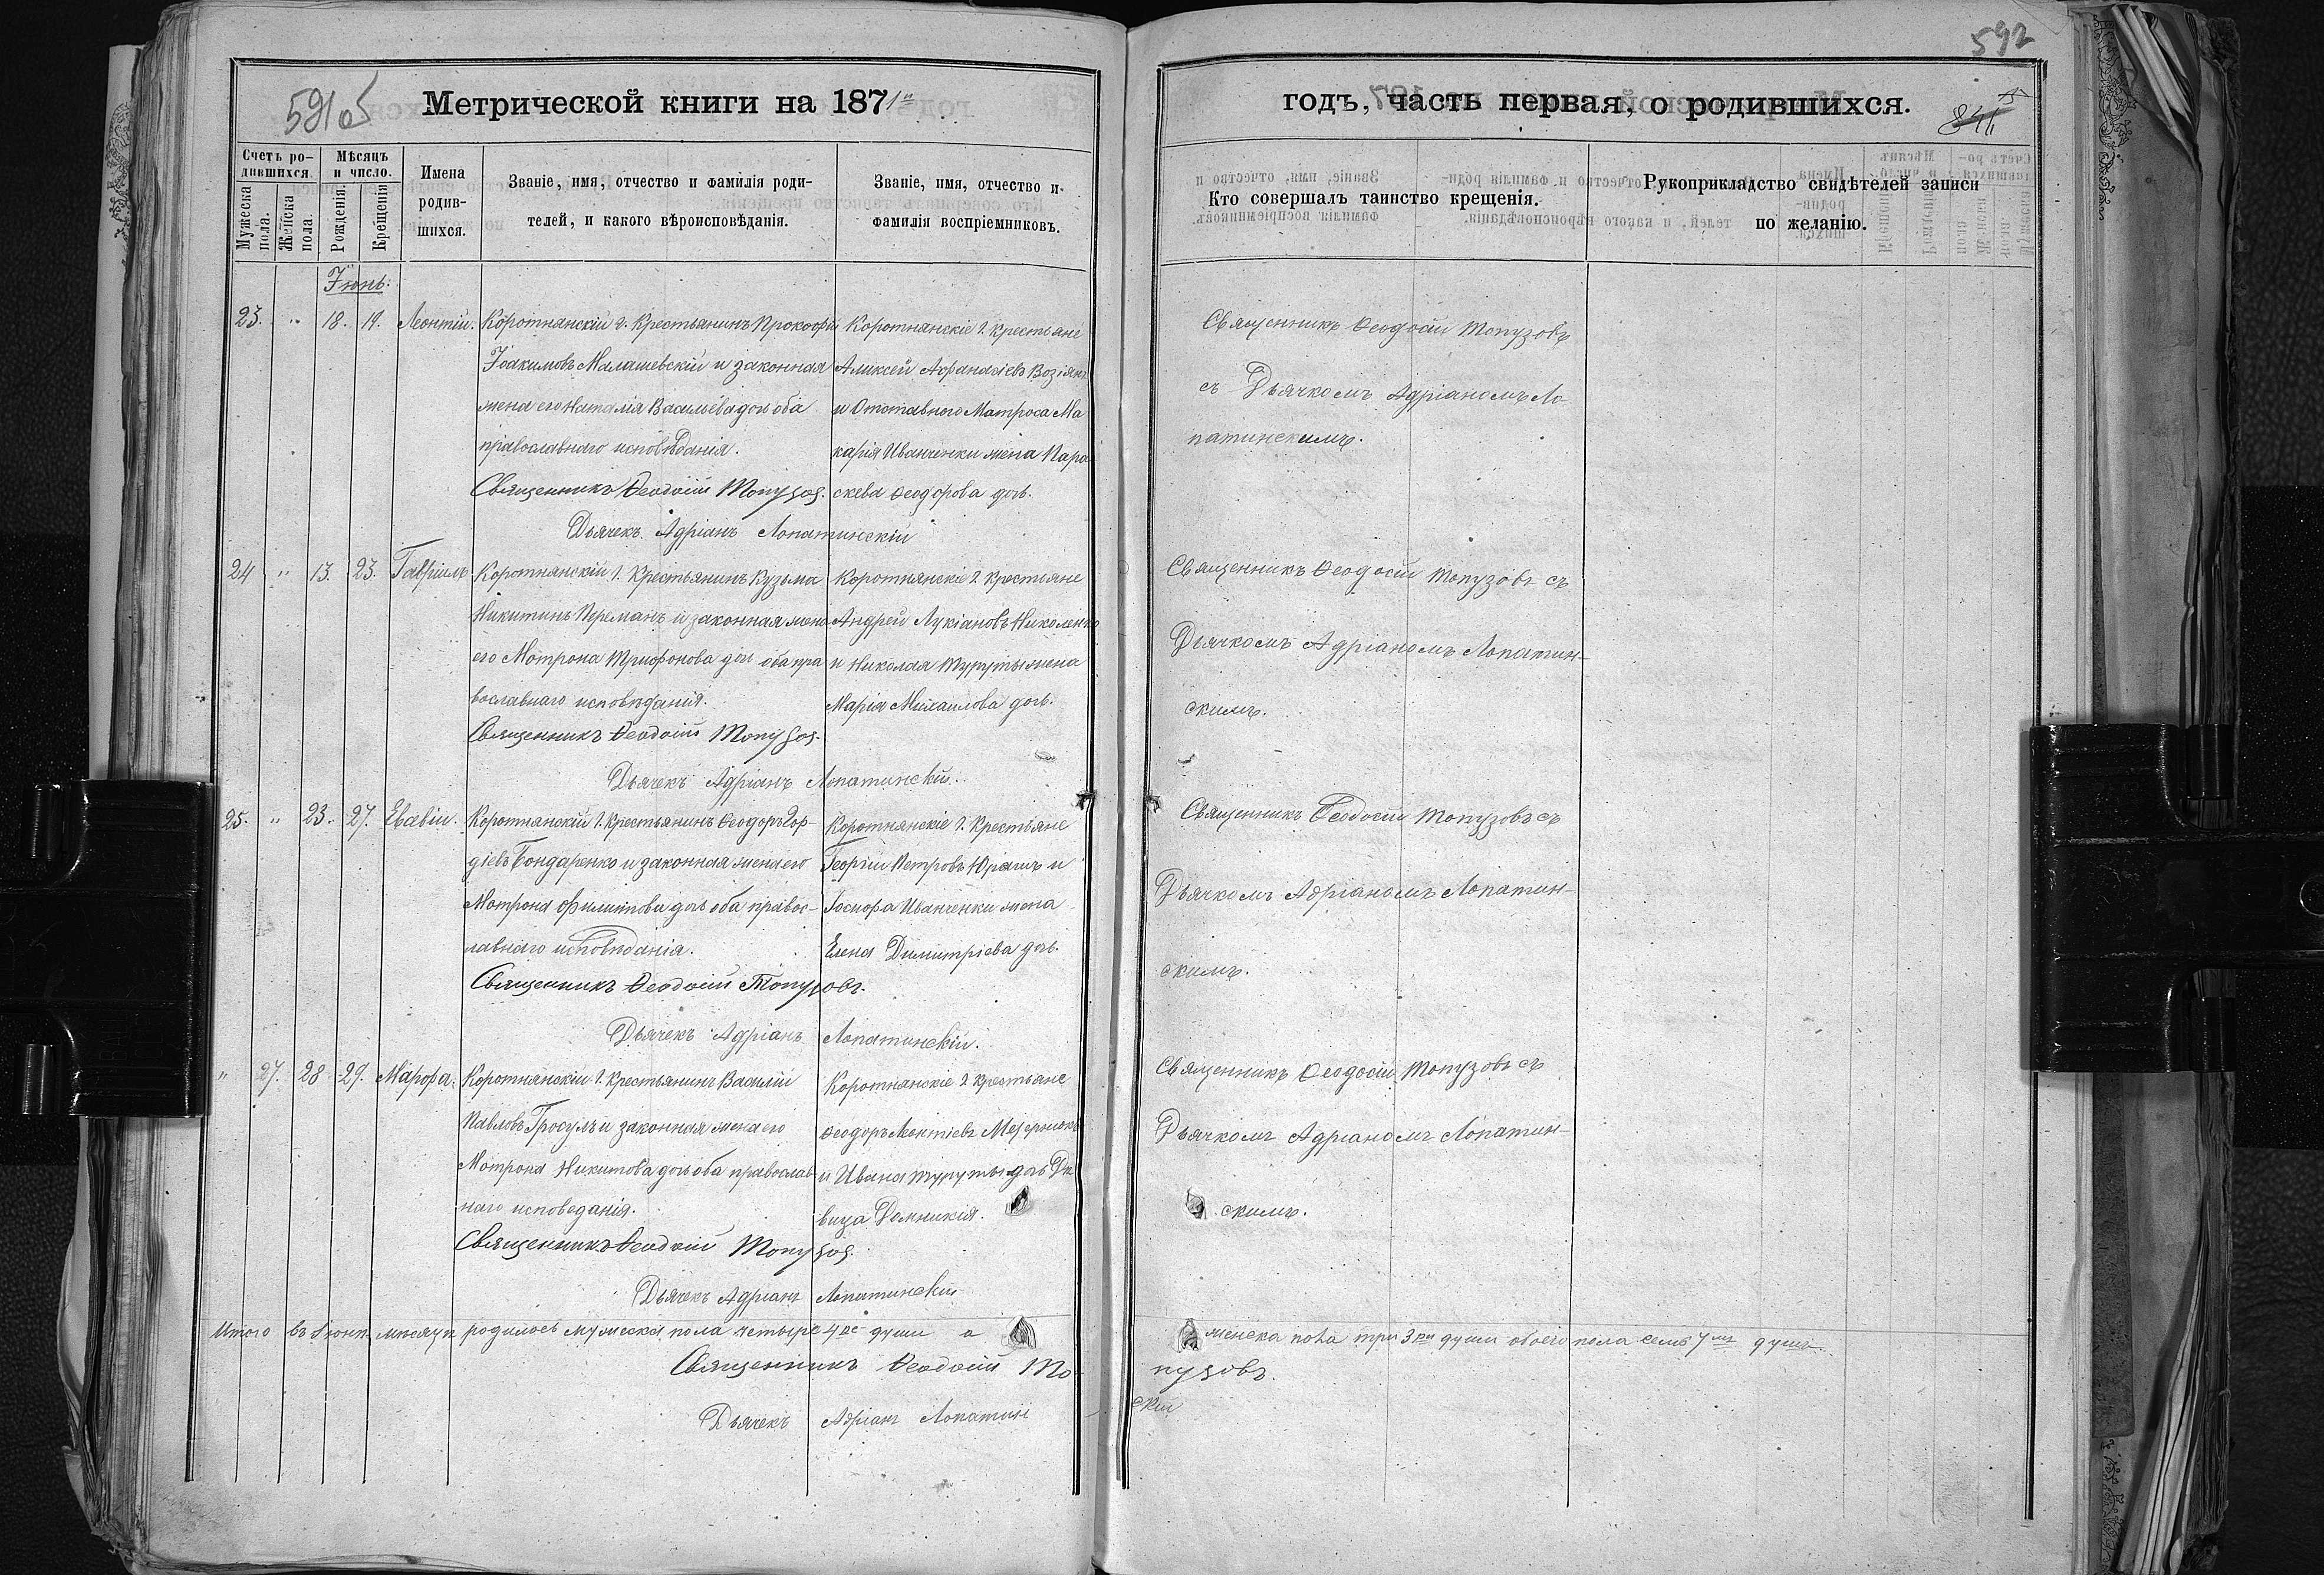 591 об
Метрической книги на 1871й
Счетъ ро-
дившихся.
Мужеска пола.
Женска пола.
Мѣсяцъ
и число.
Рожденія.
Крещенія
Имена
родив-
шихся.
Званіе, имя, отчество и фамилія роди-
телей, и какого вѣроисповѣданія.
Званіе, имя, отчество и
фамилія воспріемниковъ.
Іюнь.
23. " 18. 19. Леонтій.
Коротнянскій г. Крестьянинъ Прокофій
Іоакимовъ Малашевскій и законная
жена его Наталія Васильева дочь оба
православнаго исповѣданія.
Священникъ Ѳеодосій Топузов.
Дьячекъ Адріанъ Лопатинскій
Коротнянскіе г. крестьяне
Алексей Афанасіевъ Возіянъ
и Отставного Матроса Ма
карія Иванченки жена Пара
скева Ѳеодорова дочь.
24 " 13. 23. Гавріилъ
Коротнянскій г. Крестьянинъ Кузьма
Никитинъ Пержанъ и законная жена
его Мотрона Трифонова дочь оба пра
вославнаго исповѣданія.
Священникъ Ѳеодосій Топузов.
Дьячекъ Адріанъ Лопатинскій.
Коротнянскіе г. крестьяне
Андрей Лукіановъ Николенко
и Николая Туруты жена
Марія Михаилова дочь.
25. " 23. 27. Евсевій.
Коротнянскій г. Крестьянинъ Ѳеодоръ Гор-
діевъ Бондаренко и законная жена его
Мотрона Филиппова дочь оба правос-
лавнаго исповѣданія.
Священникъ Ѳеодосій Топузовъ.
Дьячекъ Адріанъ Лопатинскій.
Коротнянскіе г. Крестьяне
Георгій Петровъ Юрашъ и
Іосифа Иванченки жена
Елена Димитріева дочь.
" 27. 28 29. Марфа.
Коротнянскій г. Крестьянинъ Василій
Павловъ Гросулъ и законная жена его
Мотрона Никитова дочь оба православ-
наго исповеданія.
Священникъ Ѳеодосій Топузов.
Дьячекъ Адріанъ Лопатинскій
Коротнянскіе г. крестьяне
Ѳеодоръ Леонтіевъ
и Ивана Туруты дочь Дѣ
вица Домникія.
Итого въ Іюнѣ мѣсяцѣ родилось мужеска пола четыре 4ре души а
Священникъ Ѳеодосій То-
Дьячекъ Адріанъ Лопатин
592
годъ, часть первая, о родившихся.
841
Кто совершалъ таинство крещенія.
Рукоприкладство свидѣтелей записи
по желанію.
Священникъ Ѳеодосій Топузовъ
съ Дьячкомъ Адріаномъ Ло-
патинскимъ.
Священникъ Ѳеодосій Топузовъ съ
Дьячкомъ Адріаномъ Лопатин-
скимъ.
Священникъ Ѳеодосій Топузовъ съ
Дьячкомъ Адріаномъ Лопатин-
скимъ.
Священникъ Ѳеодосій Топузовъ съ
Дьячкомъ Адріаномъ Лопатин-
скимъ.
женска пола три 3ри души обоего пола семь 7мь душъ.
пузовъ.
скій